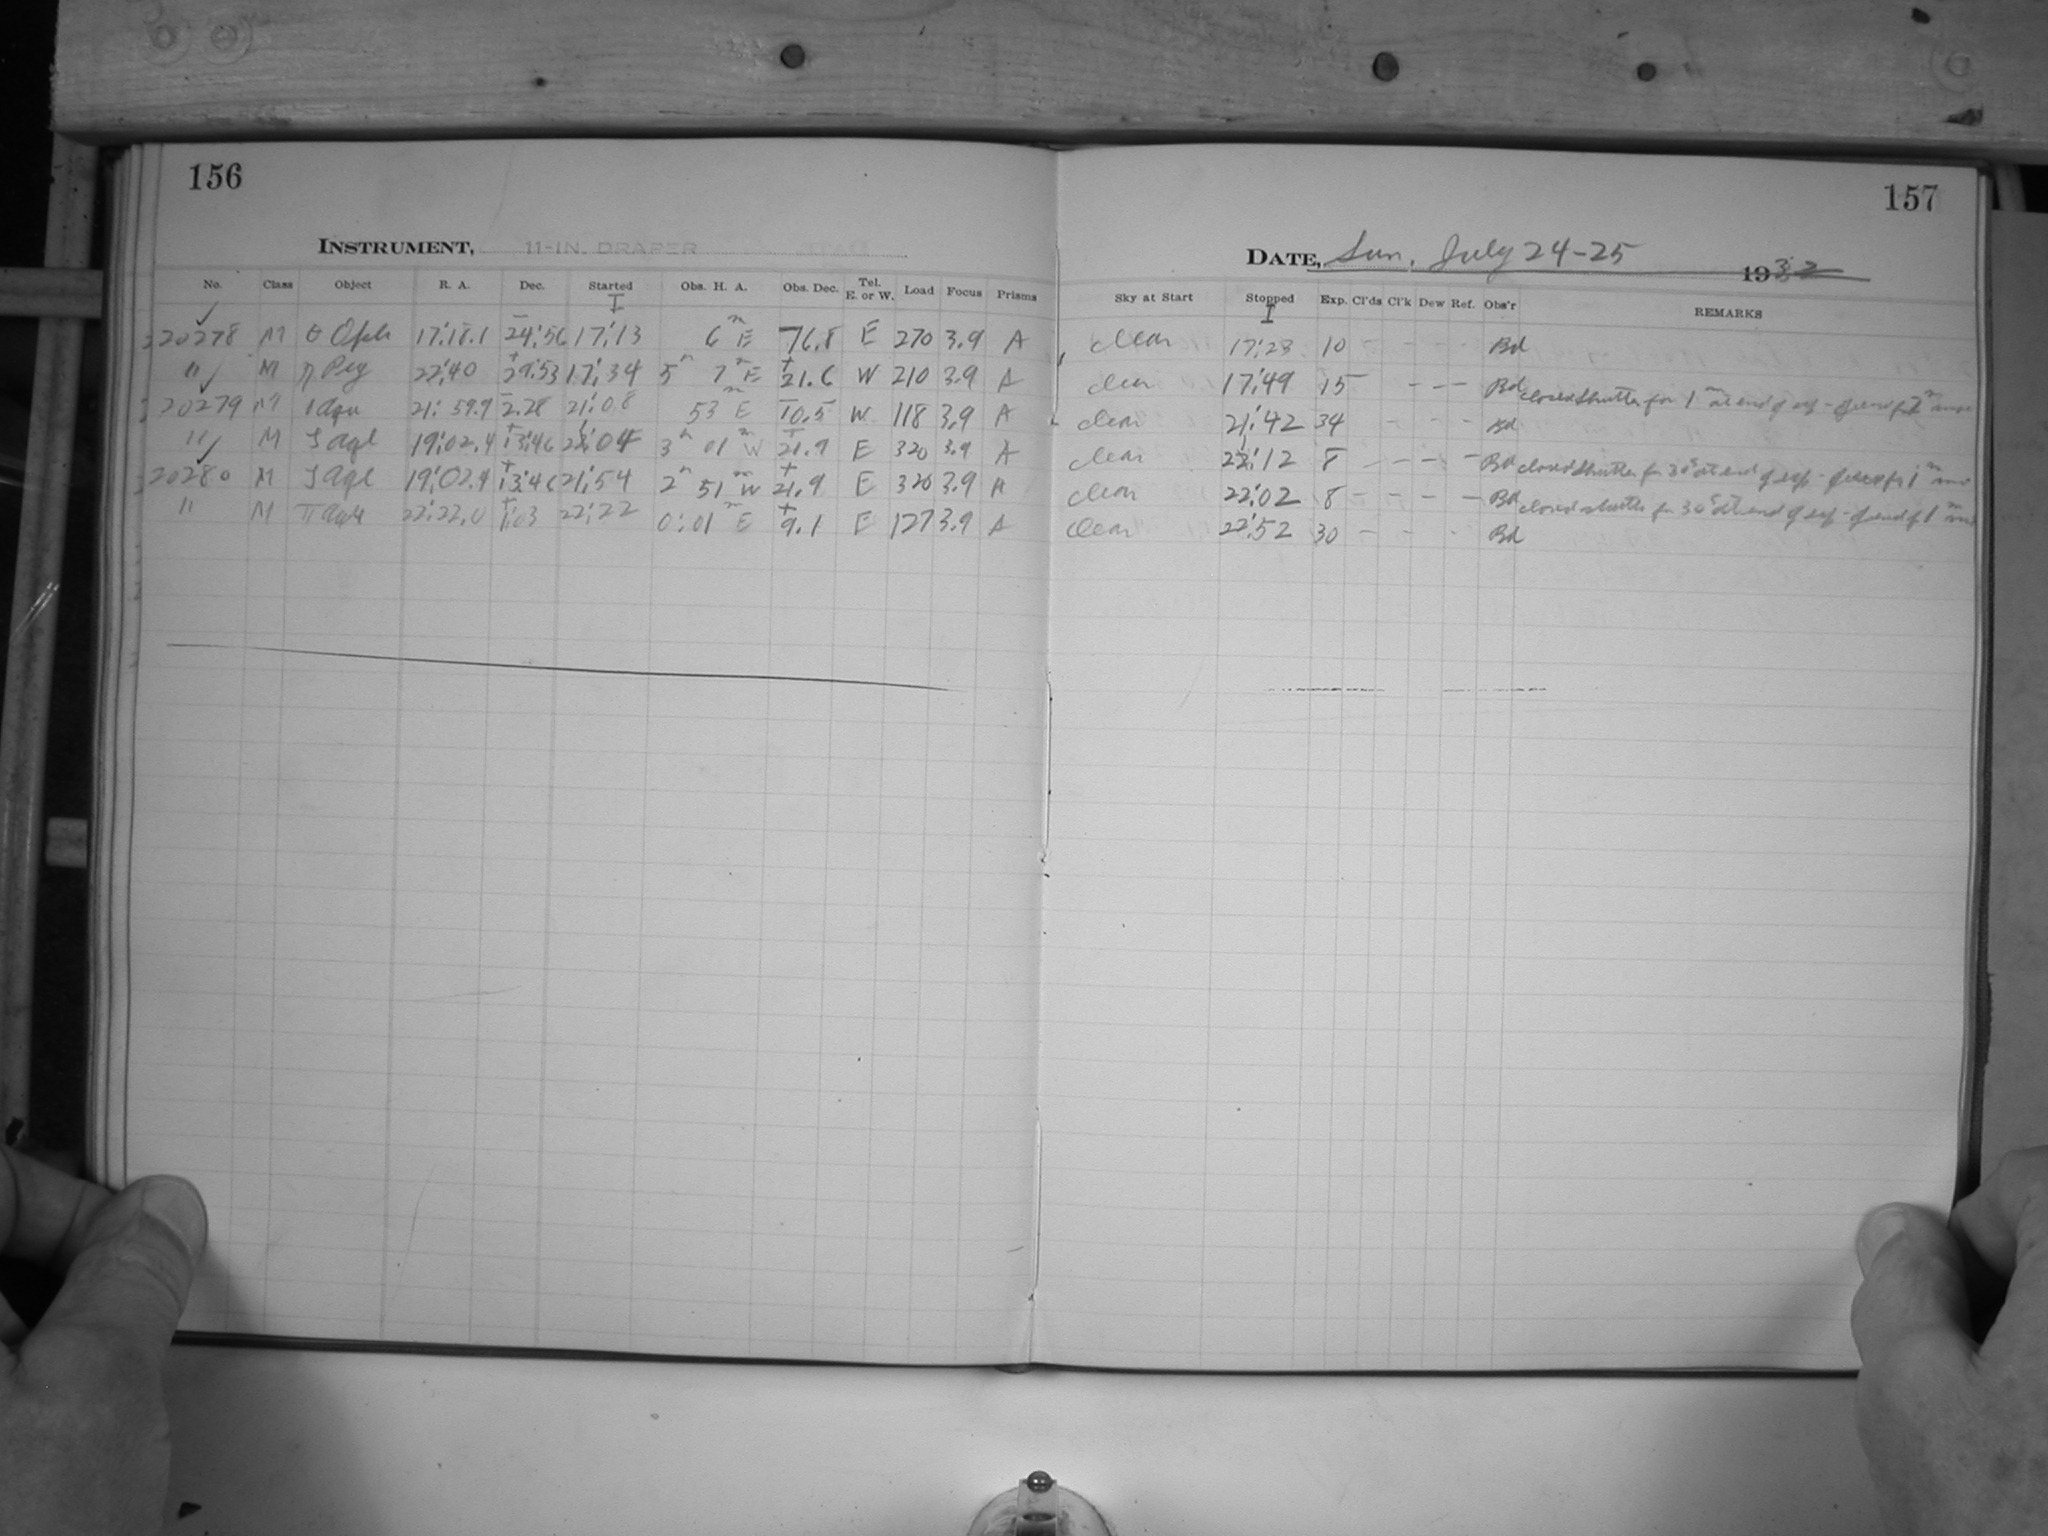 156
INSTRUMENT, 11-IN. DRAPER
No. Class Object R. A. Dec. Started Obs. H. A. Obs. Dec. Tel. E. or W. Load Focus Prisms
I
20278 M θ Oph 17:18.1 -24:56 17:13 6m E 76.8 E 270 3.9 A
" M η Peg 22:40 +29:53 17:34 5h 7m E +21.6 W 210 3.9 A
20279 M 21:59.9 -2.28 21:08 53m E -10.5 W 118 3.9 A
" M ζ aql 19:02.4 +13:46 22:04 3h 01m W 21.9 E 320 3.9 A
20280 M ζ aql 19:02.4 +13:46 21:54 2h 51m W +21.9 E 320 3.9 A
" M π aqu 22:22.0 +1:03 22:22 0:01m E +9.1 E 127 3.9 A
157
DATE, Sun. July 24-25 1932
Sky at Start Stopped Exp. Cl'ds Cl'k Dew Ref. Obs'r REMARKS
I
clear 17:23 10 - - - - Bd
clear 17:49 15 - - - Bd closed shutter for 1m at end of exp -
clear 21:42 34 - - - - Bd
clear 22:12 8 - - - - Bd closed shutter for 30s at end of exp - for 1m
clear 22:02 8 - - - - Bd closed shutter for 30s at end of exp - 1m
clear 22:52 30 - - - Bd